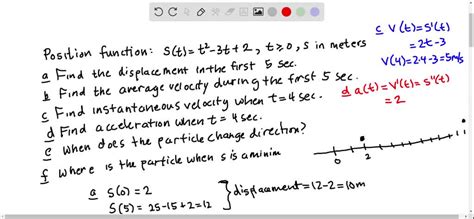 Position function: S(t)=t²-3t+2, t≥0, s in meters
a Find the displacement in the first 5 sec.
b Find the average velocity during the forst 5 sec.
c Find instantaneous velocity when t=4sec.
d Find acceleration when t=4sec.
e When does the particle change direction?
f Where is the particle when s is aminim
a S(0)=2
S(5)=25-15+2=12 } displacement=12-2=10m
c V(t)=S'(t)
=2t-3
V(4)=2·4-3=5m/s
d a(t)=V'(t)=S''(t)
=2
0 2